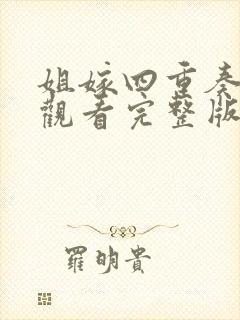 姐嫁四重奏
觀看完整版
羅明貴